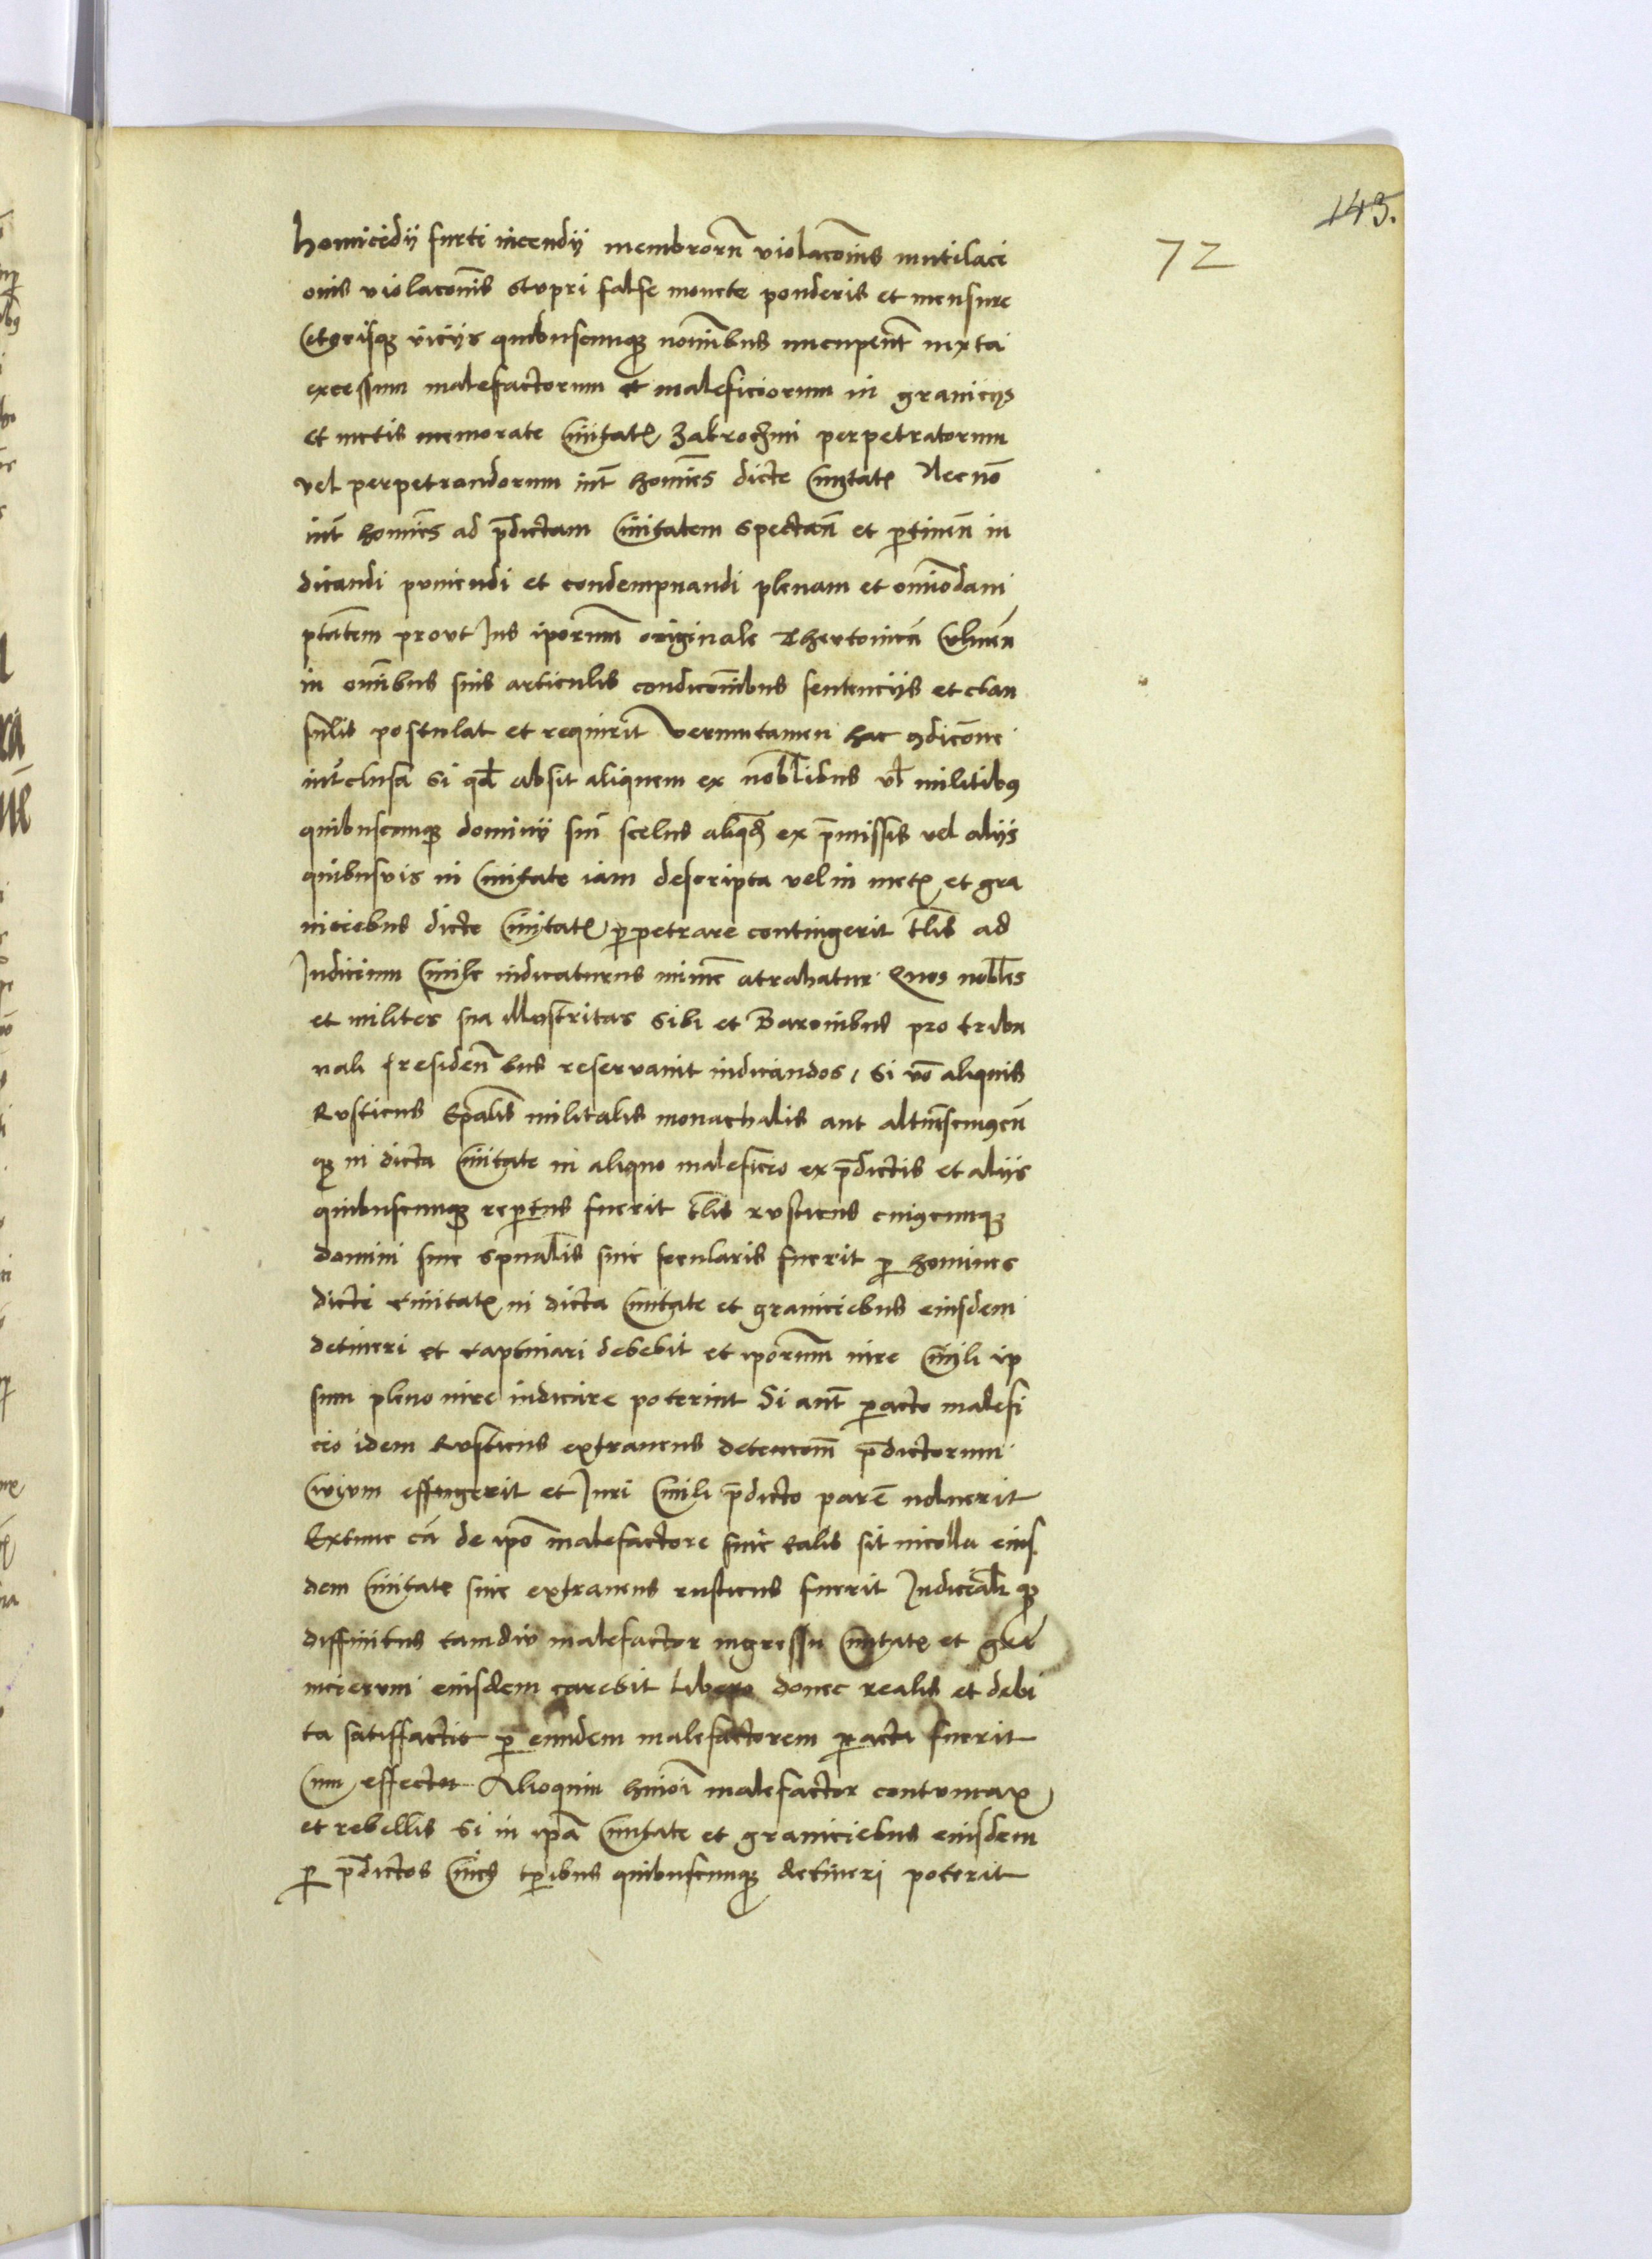 143.
72
homicidij furti incendij membrorū violacōnis mutilaci
onis violacōnis stvpri false monete ponderis et mensure
Ceterisqꝫ vicijs quibuscunqꝫ nominibus nuncupent᷑ iuxta
excessum malefactorum et maleficiorum in granicijs
et metis memorate Ciuitatꝭ Zakroczimi perpetratorum
vel perpetrandorum int᷑ homines dicte Ciuitatꝭ Necnō
int᷑ homines ad p̄dictam Ciuitatem spectan̄ et ꝑtinen̄ iu
dicandi puniendi et condempnandi plenam et om̄imodam
ptātem provt Jus ip̄orum originale Thevtonicū Culmen̄
in om̄ibus suis articulis condicōnibus sentencijs et clau
sulis postulat et requirit Verumtamen hac ꝯdicōne
int᷑clusa Si qd̄ absit aliquem ex nobilibus vl̄ militibꝰ
quibuscunqꝫ dominij sui scelus aliqd̄ ex p̄missis vel alijs
quibusvis in Ciuitate iam descripta vel in metꝭ et gra
niciebus dicte Ciuitatꝭ ꝑpetrare contingerit tl̄is ad
Judicium Ciuile iudicaturus minime atrahatur Quos nobiles
et milites sua illustritas sibi et Baronibus pro tribu
nali presiden̄bus reservauit iudicandos, Si vō aliquis
Rvsticus Ep̄alis militalis monachalis aut alt᷑iuscuiꝰcū
qꝫ in dicta Ciuitate in aliquo maleficio ex p̄dictis et alijs
quibuscunqꝫ reꝑtus fuerit tl̄is rvsticus cuiꝰcunqꝫ
domini siue sp̄ualis siue secularis fuerit ꝑ homines
dicte Ciuitatꝭ in dicta Ciuitate et graniciebus eiusdem
detineri et captiuari debebit et ip̄orum iure Ciuili ip
sum pleno iure iudicare poterint Si aut᷑ ꝑacto malefi
cio idem Rvsticus extraneus detencōem p̄dictorum
Civium effugerit et Juri Ciuili p̄dicto parere noluerit
Extunc cū de ip̄o malefactore siue talis sit incola eius
dem Ciuitatꝭ siue extraneus rusticus fuerit Judicialit᷑ qꝫ
diffinitus tamdiv malefactor ingressu Ciuitatꝭ et gra
nicierum eiusdem carebit libero donec realis et debi
ta satisfactio ꝑ eundem malefactorem ꝑacta fuerit
Cum effectu Alioquin huiōi malefactor contvmax
et rebellis Si in ip̄a Ciuitate et graniciebus eiusdem
ꝑ p̄dictos Ciues tꝑibus quibuscunqꝫ detineri poterit